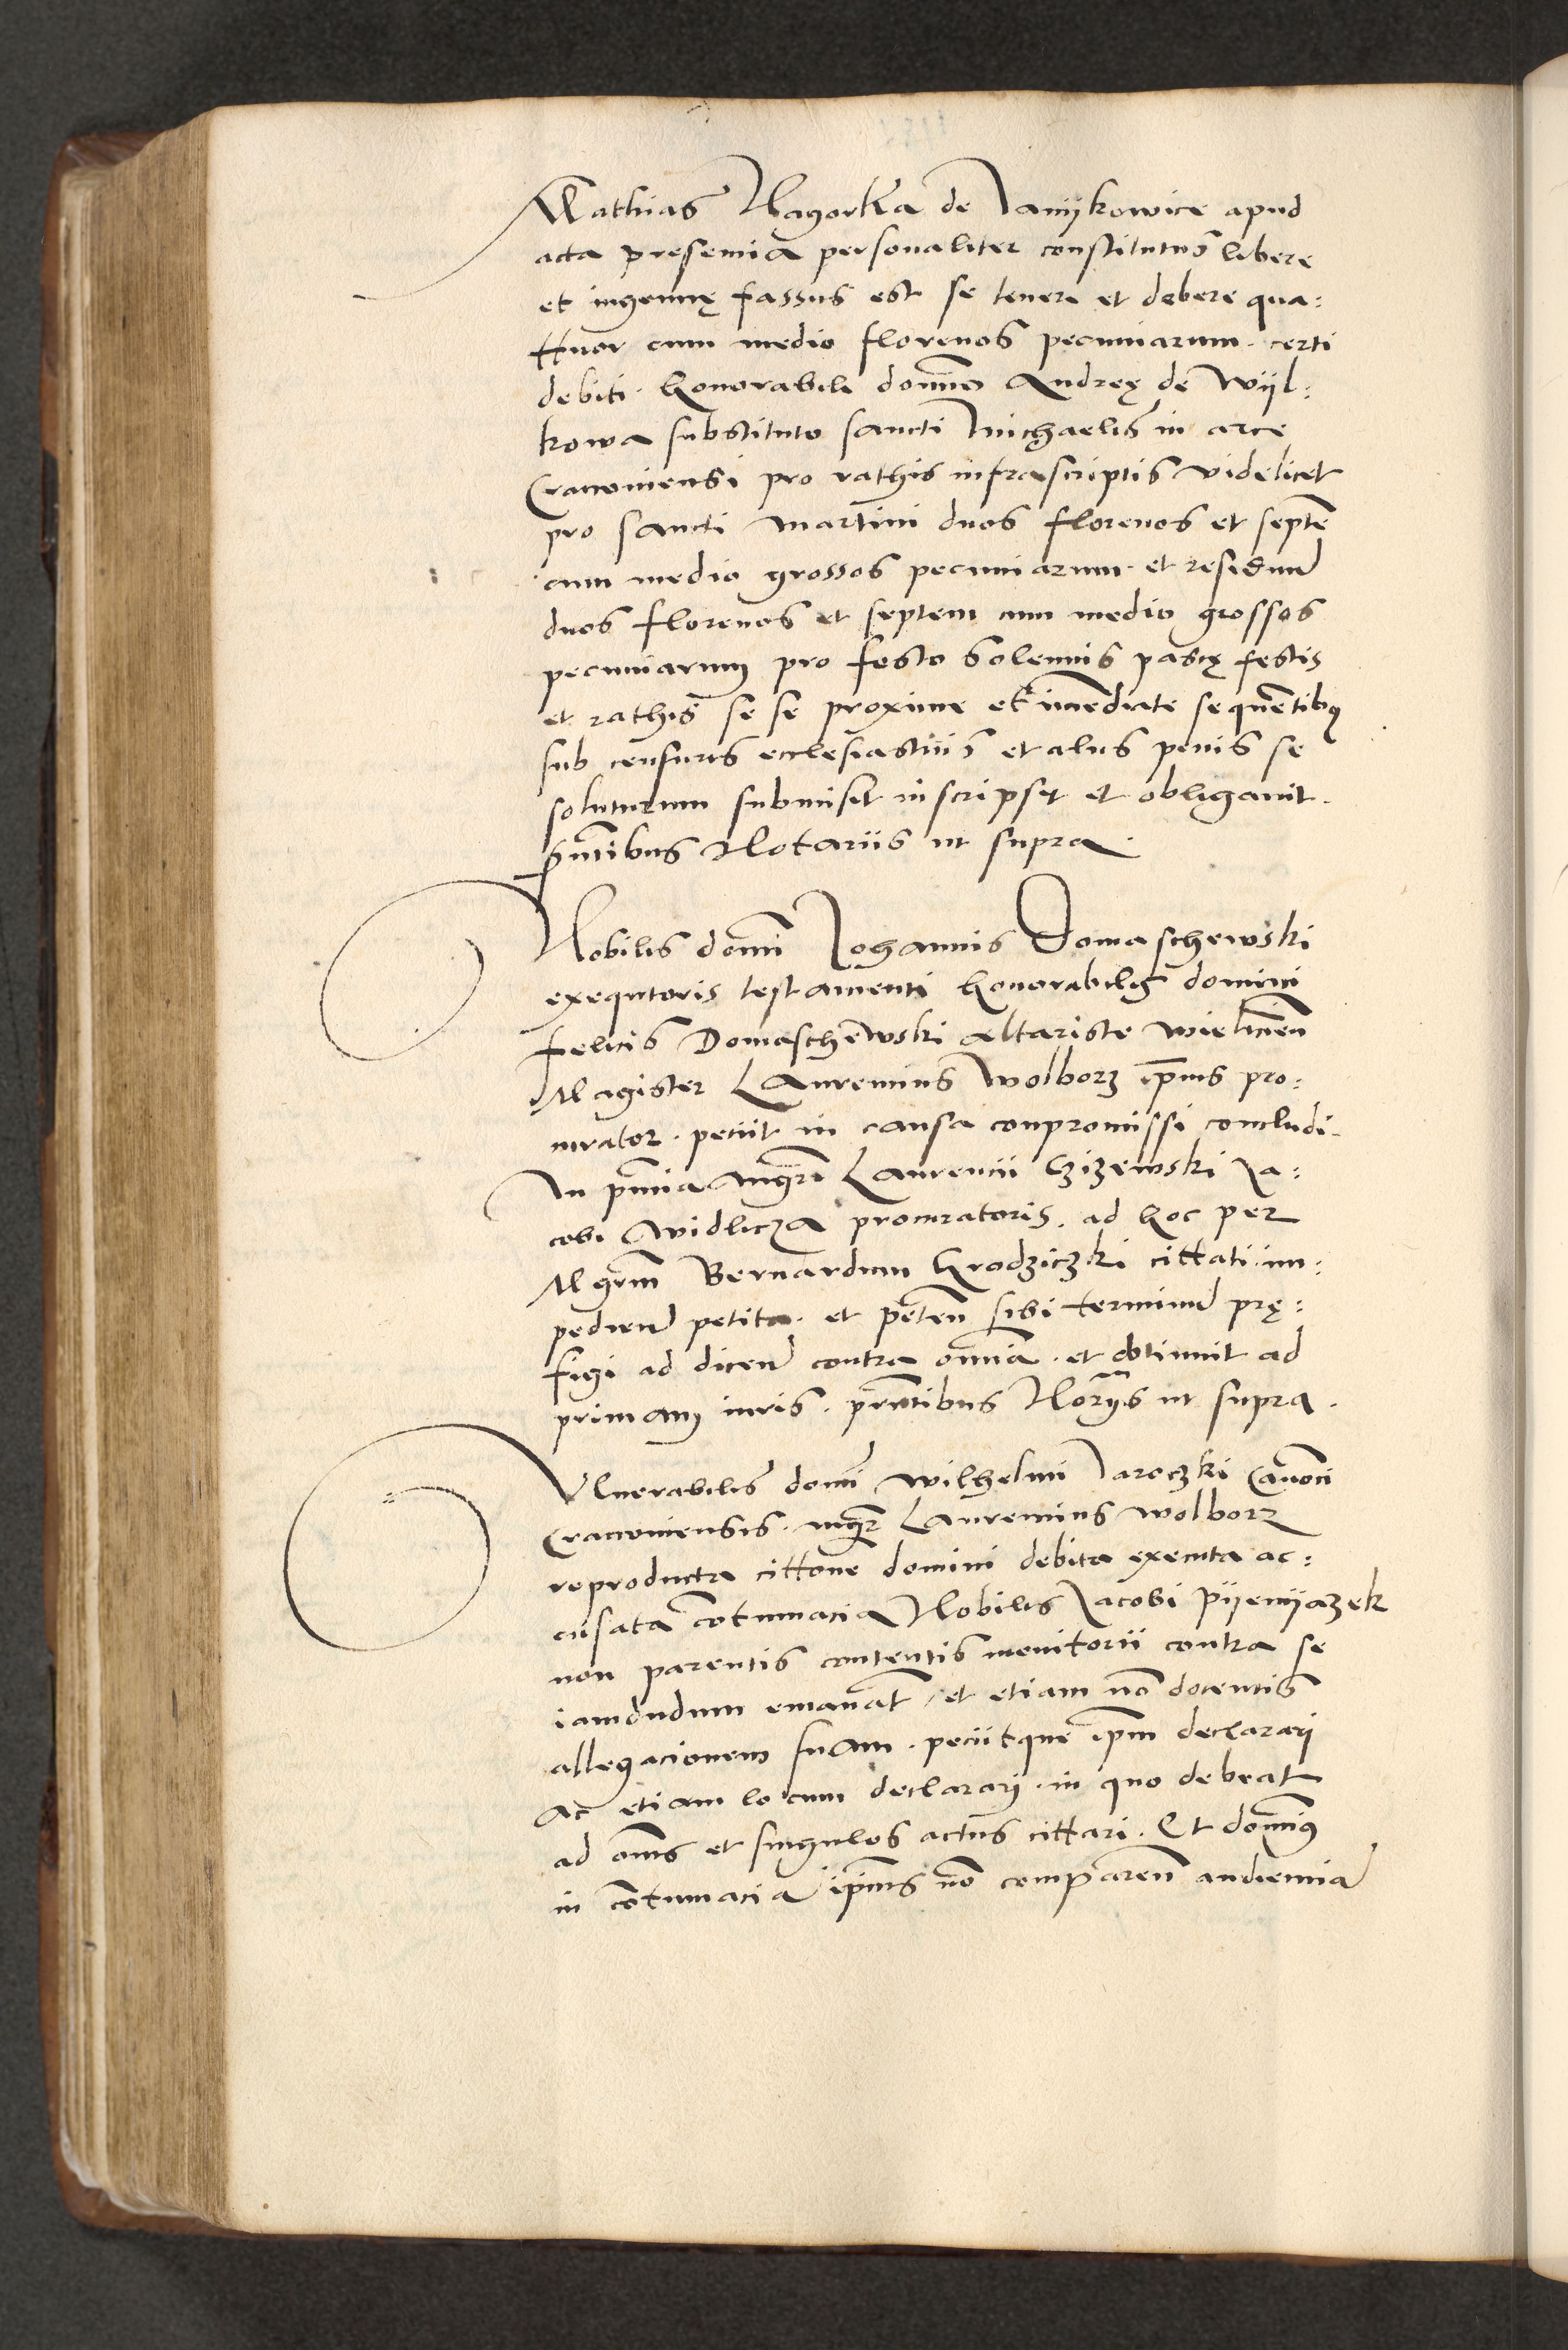 Mathias Nagorka de Janykowice apud
acta presentia personaliter constitutus libere
et ingenuę fassus est se teneri et debere qua:
ttuor cum medio florenos pecuniarum certi
debiti honorabili domino Andreę de Wyl:
kowa substituto sancti Michaelis in arce
Cracoviensi pro rathis infrascriptis videlicet
pro sancti Martini duos florenos et septē
cum medio grossos pecuniarum et residuū
duos florenos et septem cum medio grossos
pecuniarum pro festo solennis pascę festis
et rathis se se proxime et imediate sequētibus
sub censuris ecclesiasticis et aliis penis se
soluturum submisit inscripsit et obligavit.
pñtibus Notariis ut supra.
Nobilis domi Johannis Domaschewski
exequtoris testamenti honorabilis domini
felicis Domaschewski altariste Wielicieñ
Magister Laurencius Wolborz ipius pro:
curator. petiit in causa conpromissi concludi.
In pñtia mgri Laurencii Czizewski Ja:
cobi Widlicza procuratoris. ad hoc per
Mgrm Bernardum Grodziczki cittati. im:
pedieñ petita. et peteñ sibi terminū prę:
figi ad diceñ contra omnia. et obtinuit ad
primam iuris. prñtibus Noriis ut supra.
Venerabilis domi Wilhelmi Jaroczki Canoci
Cracoviensis. mgr Laurencius Wolborz
reproducta cittone domini debita executa ac:
cusata cōtumacia Nobilis Jacobi Pyenyazek
non parentis contentis monitorii contra se
iamdudum emanat. et etiam nō docentis
allegacionem suam. peciitque ipm declarari
Ac etiam locum declarari. in quo debeat
ad oms et singulos actus cittari. Et dominus
in cōtumacia ipius nō compareñ audiencia